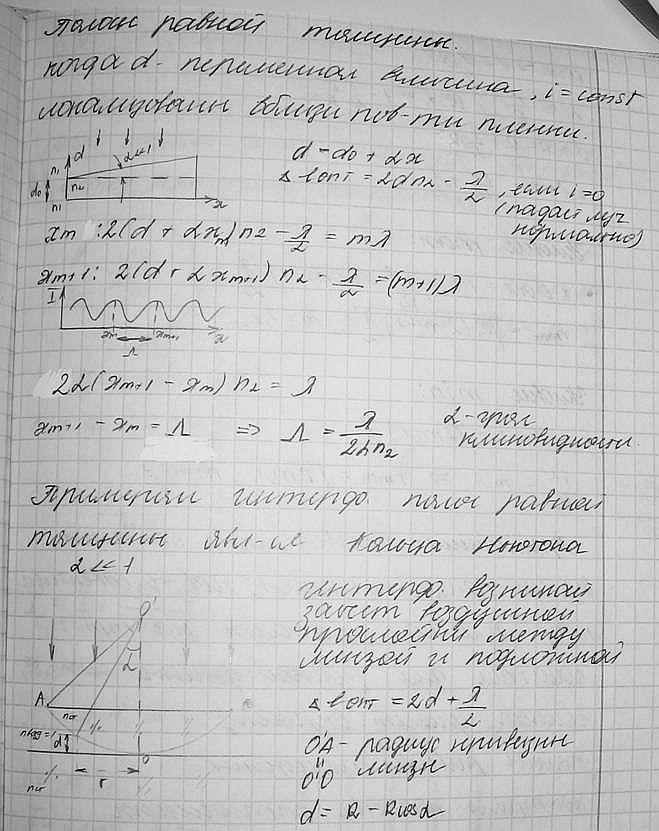 полосы равной толщины.
когда d - переменная величина, i = const
локализованы вблизи пов-ти пленки.
n₁ d α<<1
d₀ n₂
n₁ x
d = d₀ + αx
Δ lопт = 2dn₂ - λ/2, если i=0
(падай луч
нормально)
xm : 2(d + αxm) n₂ - λ/2 = mλ
xm+1 : 2(d + αxm+1) n₂ - λ/2 = (m+1)λ
I
xm xm+1 x
Λ
2α(xm+1 - xm) n₂ = λ
xm+1 - xm = Λ ⇒ Λ = λ/2αn₂
α - угол
клиновидности.
Примером интерфо. полос равной
толщины явл-ся Кольца Ньютона
α << 1
интерфо. возникай
засчет воздушной
прослойки между
линзой и подложкой
O'
α
A
nст
nвозд = 1
d
O
r
nст
Δ lопт = 2d + λ/2
O'A - радиус кривизны
"
O'O линзы
d = R - Rcosα